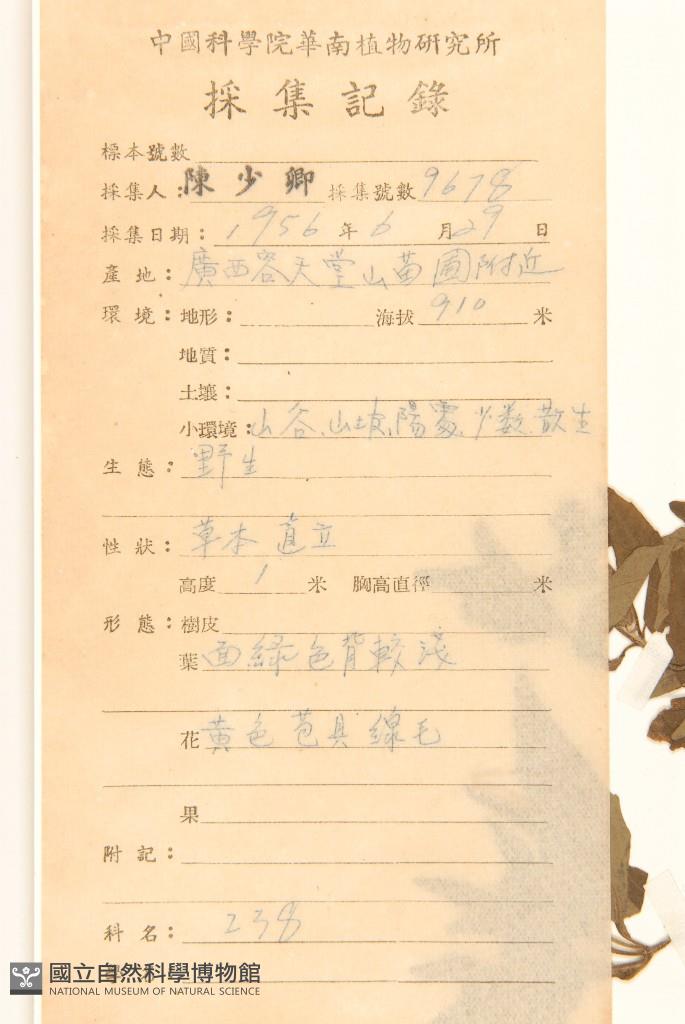 中國科學院華南植物研究所
採集記錄
標本號數
採集人：陳少卿 採集號數 9678
採集日期：1956年6月29日
產地：廣西容天堂山苗圃附近
環境：地形： 海拔 910 米
地質：
土壤：
小環境：山谷、山坡、陽處、少数、散生
生態：野生
性狀：草本 直立
高度 1 米 胸高直徑 米
形態：樹皮
葉 面綠色背較淺
花 黄色 苞具線毛
果
附記：
科名：238
國立自然科學博物館
NATIONAL MUSEUM OF NATURAL SCIENCE